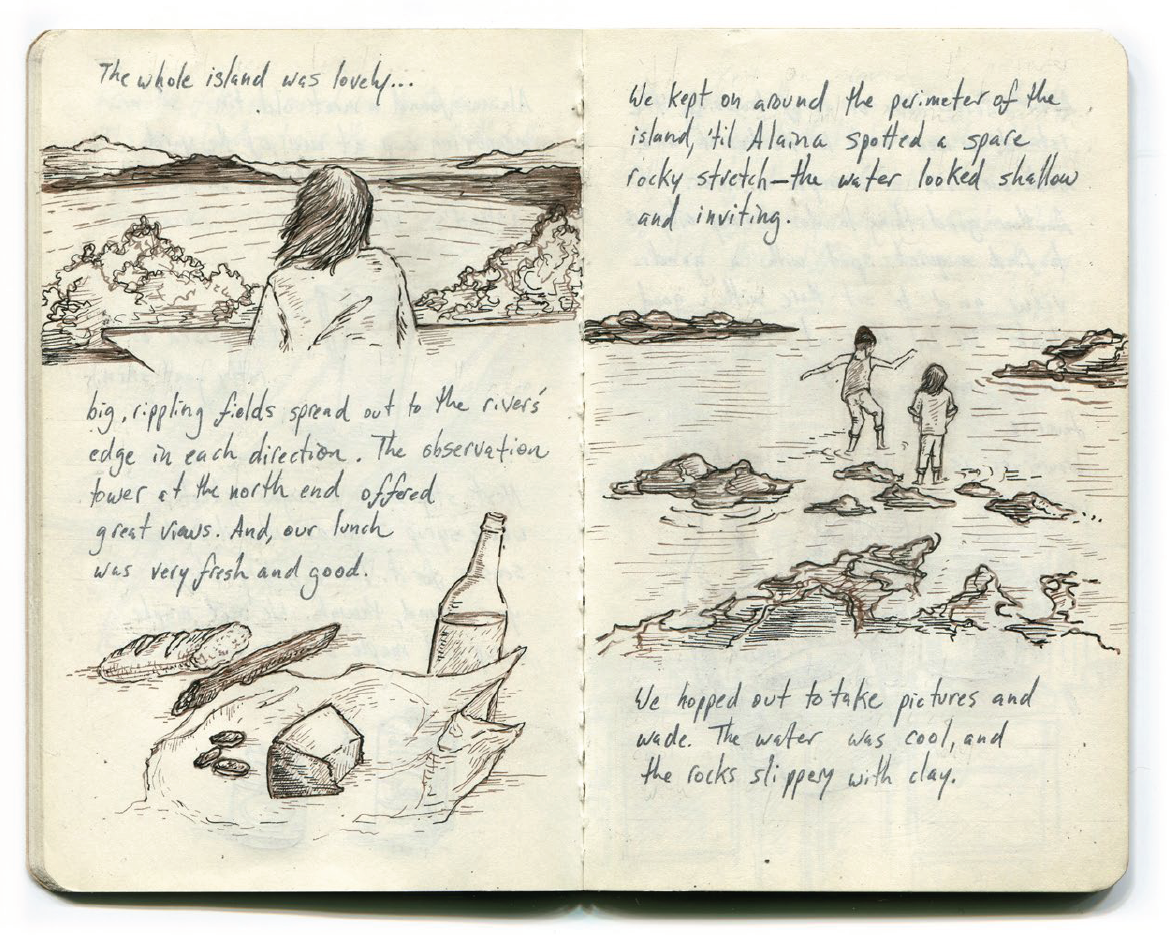 The whole island was lovely...
big, rippling fields spread out to the rivers'
edge in each direction. The observation
tower at the north end offered
great views. And, our lunch
was very fresh and good.
We kept on around the perimeter of the
island, 'til Alaina spotted a spare
rocky stretch—the water looked shallow
and inviting.
We hopped out to take pictures and
wade. The water was cool, and
the rocks slippery with clay.